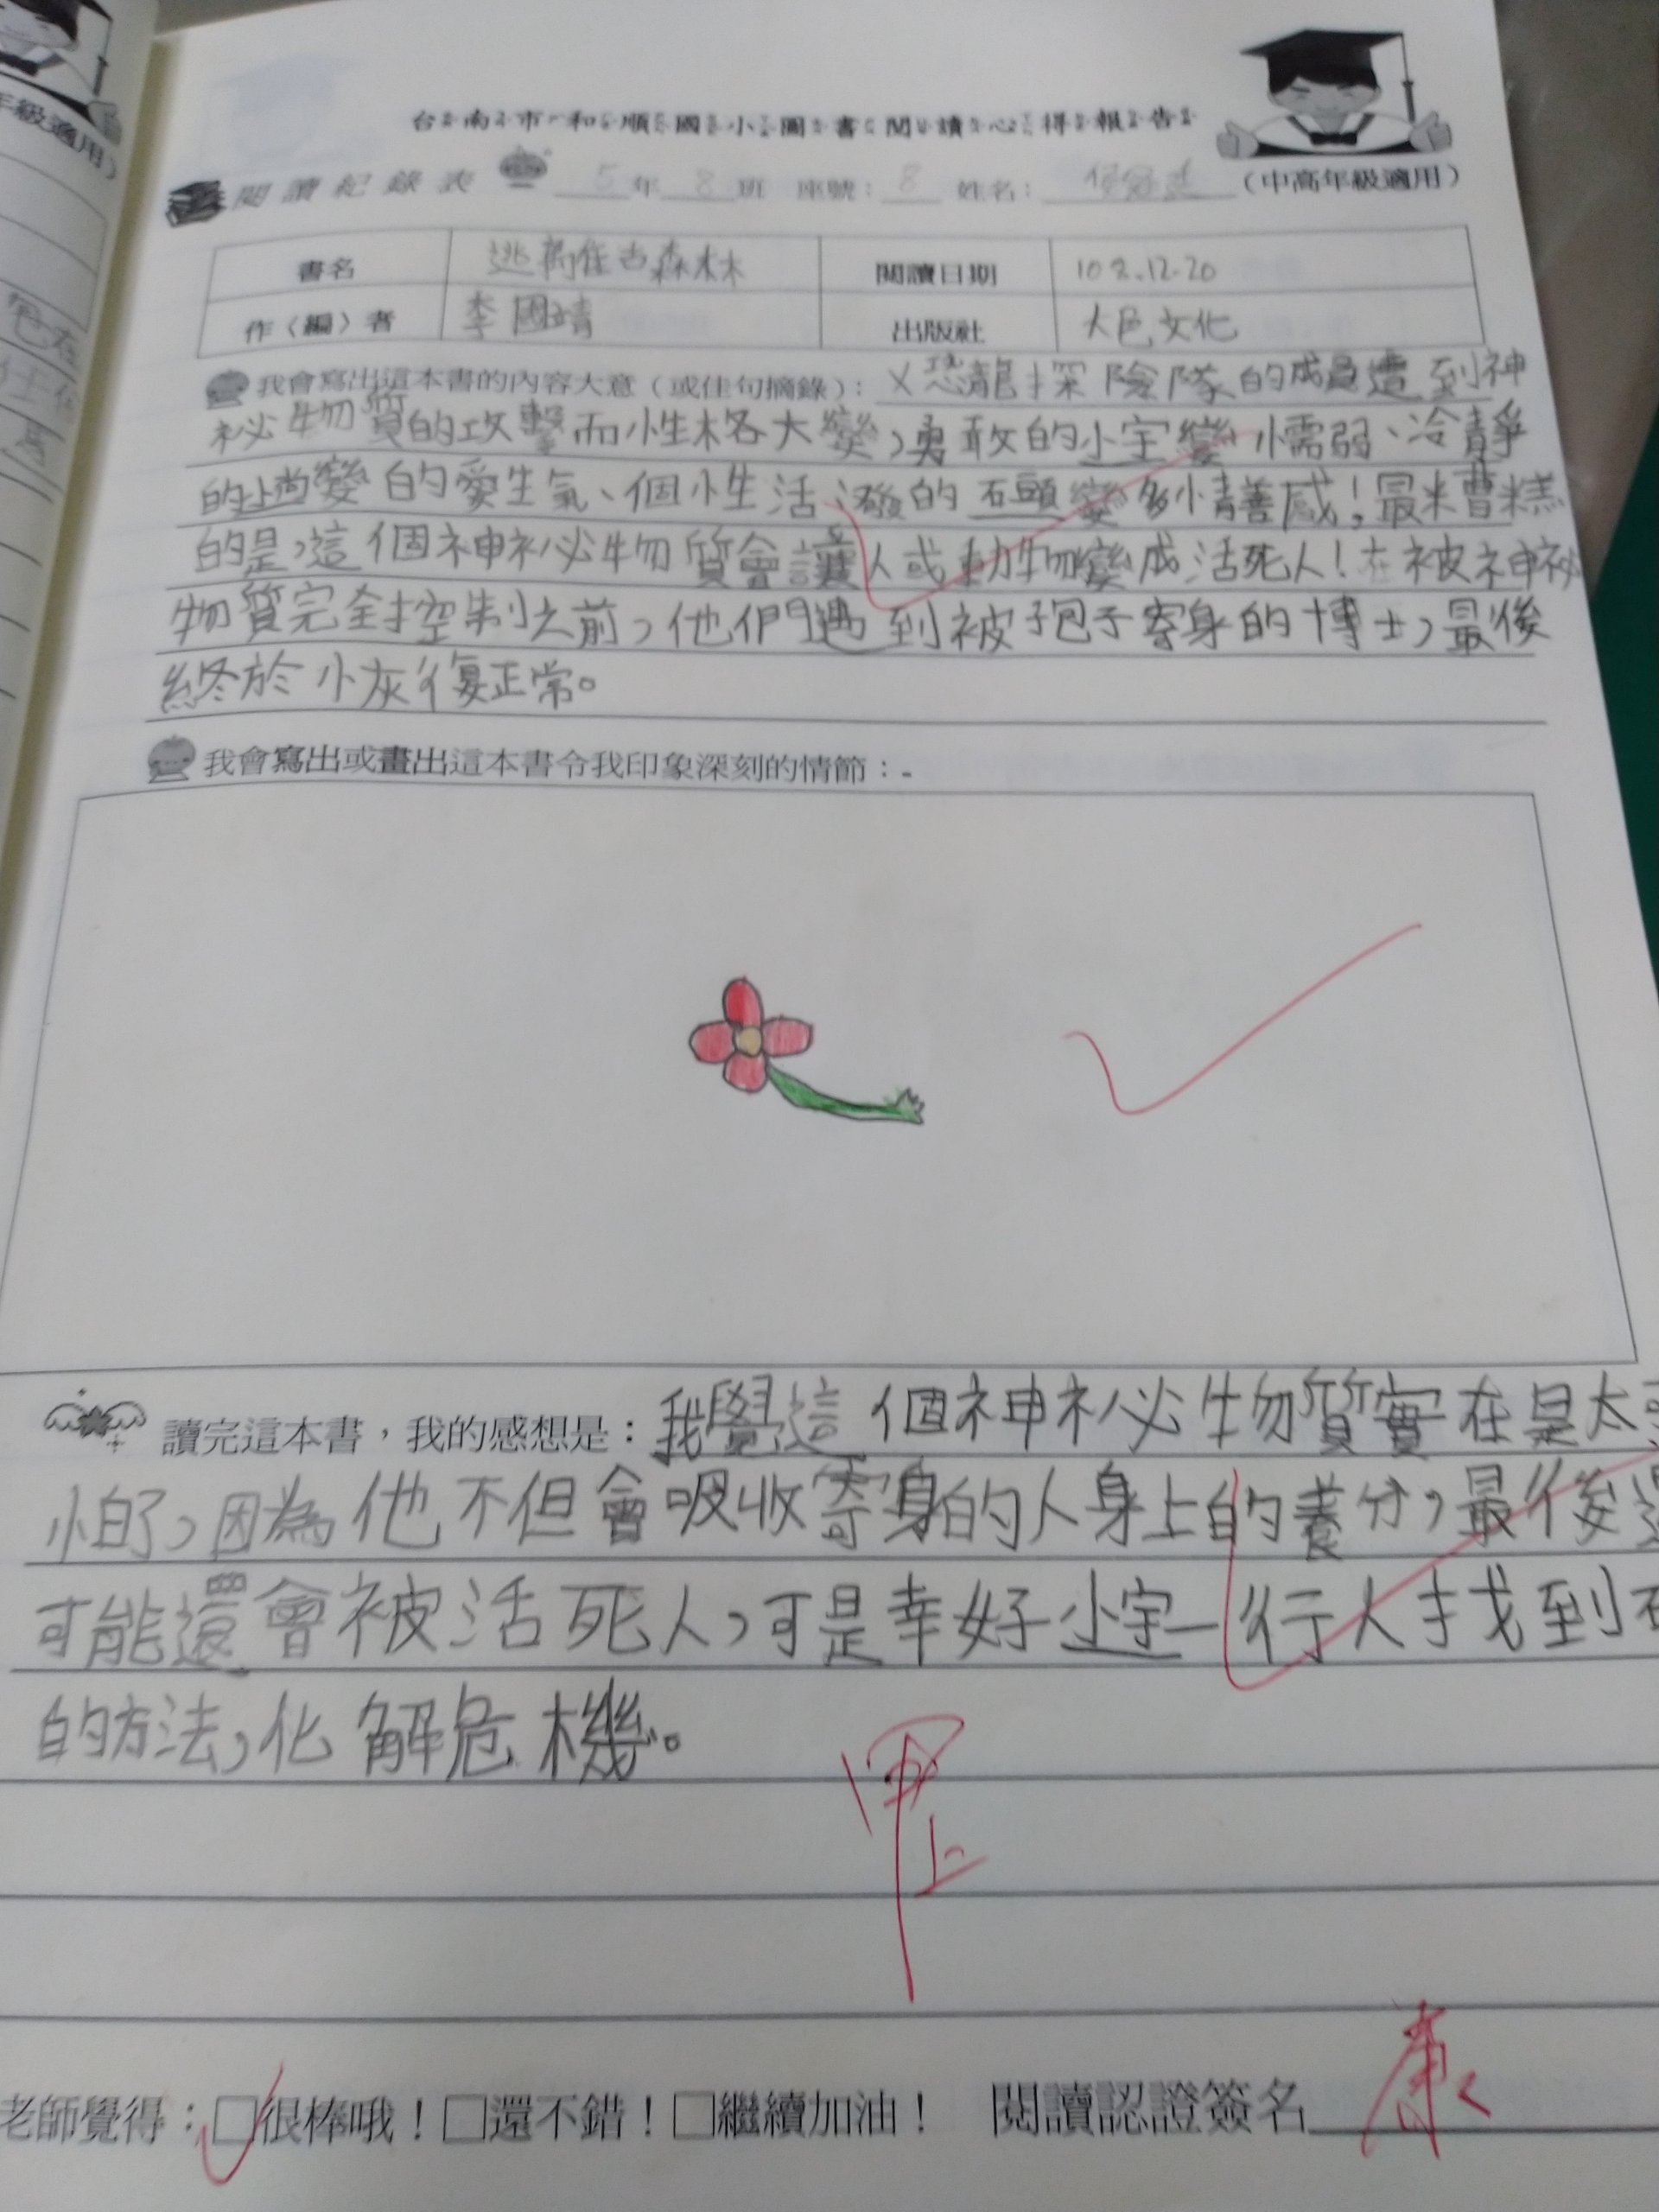 年級適用）
台南市和順國小圖書閱讀心得報告
閱讀紀錄表 5年8班 座號：8 姓名： （中高年級適用）
書名 逃離侏古森林 閱讀日期 108.12.20
作（編）者 李國靖 出版社 大邑文化
我會寫出這本書的內容大意（或佳句摘錄）：X恐龍探險隊的成員遭到神
祕物質的攻擊而性格大變，勇敢的小宇變懦弱、冷靜
的尚變的愛生氣、個性活潑的石頭變多愁善感！最糟糕
的是，這個神祕物質會讓人或動物變成活死人！在被神祕
物質完全控制之前，他們遇到被孢子寄身的博士，最後
終於小灰復正常。
我會寫出或畫出這本書令我印象深刻的情節：
讀完這本書，我的感想是：我覺這個神祕物質實在是太
怕了，因為他不但會吸收寄身的人身上的養分，最後
可能還會被活死人，可是幸好小宇一行人找到
的方法，化解危機。
甲上
老師覺得：□很棒哦！□還不錯！□繼續加油！ 閱讀認證簽名 康